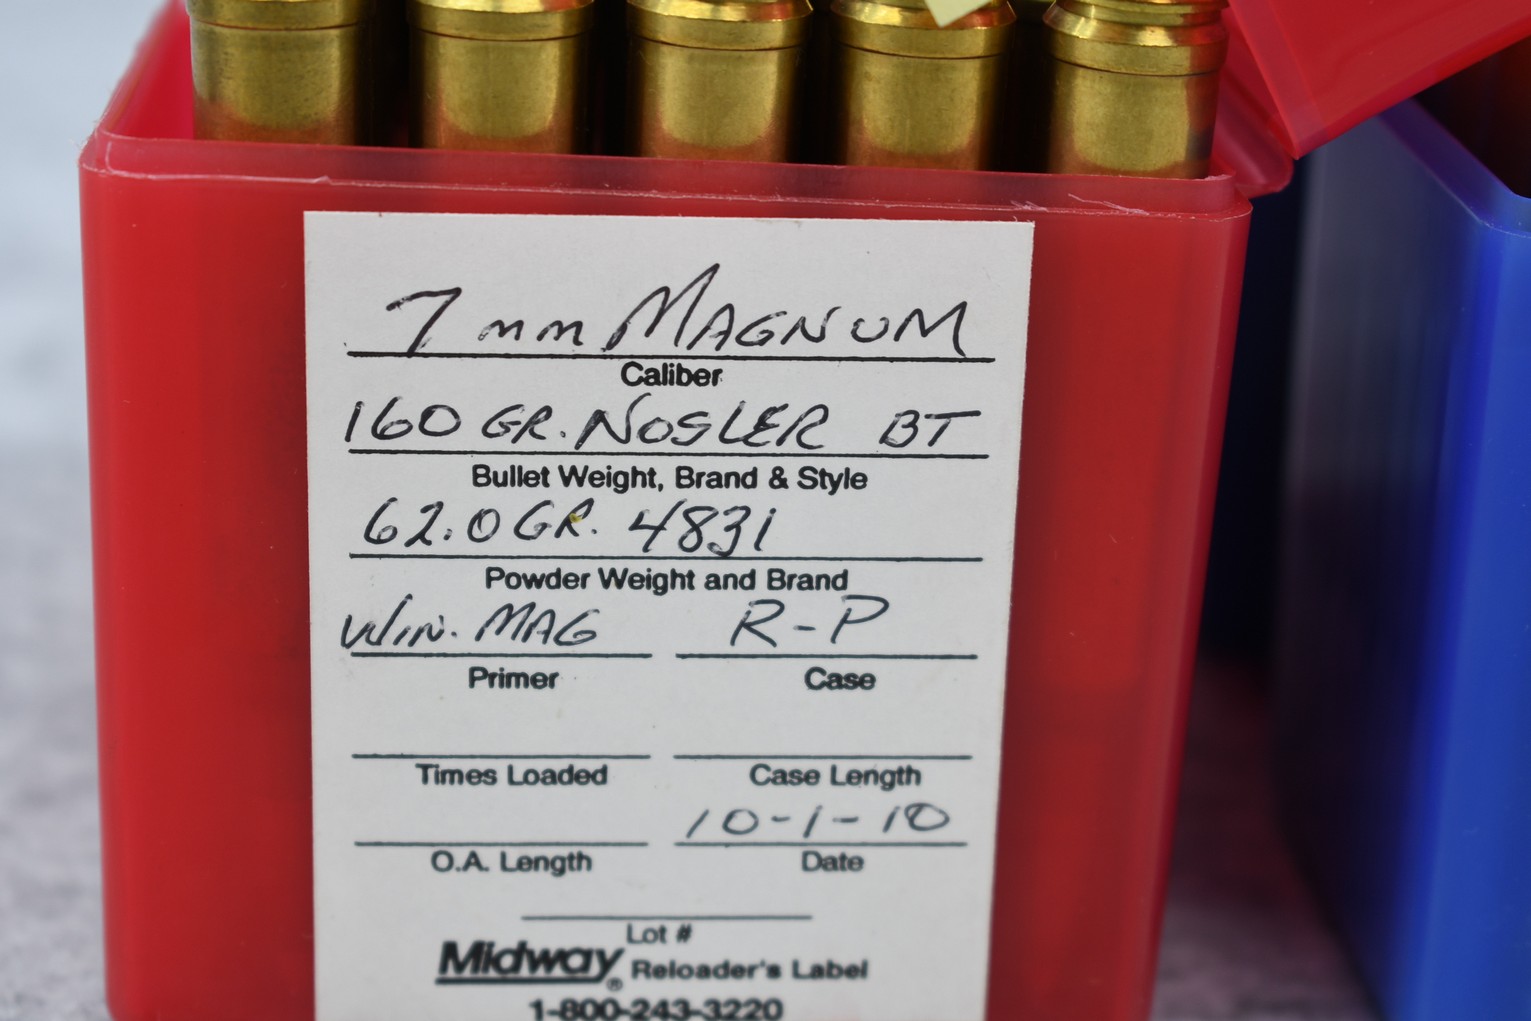 7mm MAGNUM
Caliber
160 GR. NOSLER BT
Bullet Weight, Brand & Style
62.0 GR. 4831
Powder Weight and Brand
WIN. MAG R-P
Primer Case
Times Loaded Case Length
10-1-10
O.A. Length Date
Lot #
Midway® Reloader's Label
1-800-243-3220